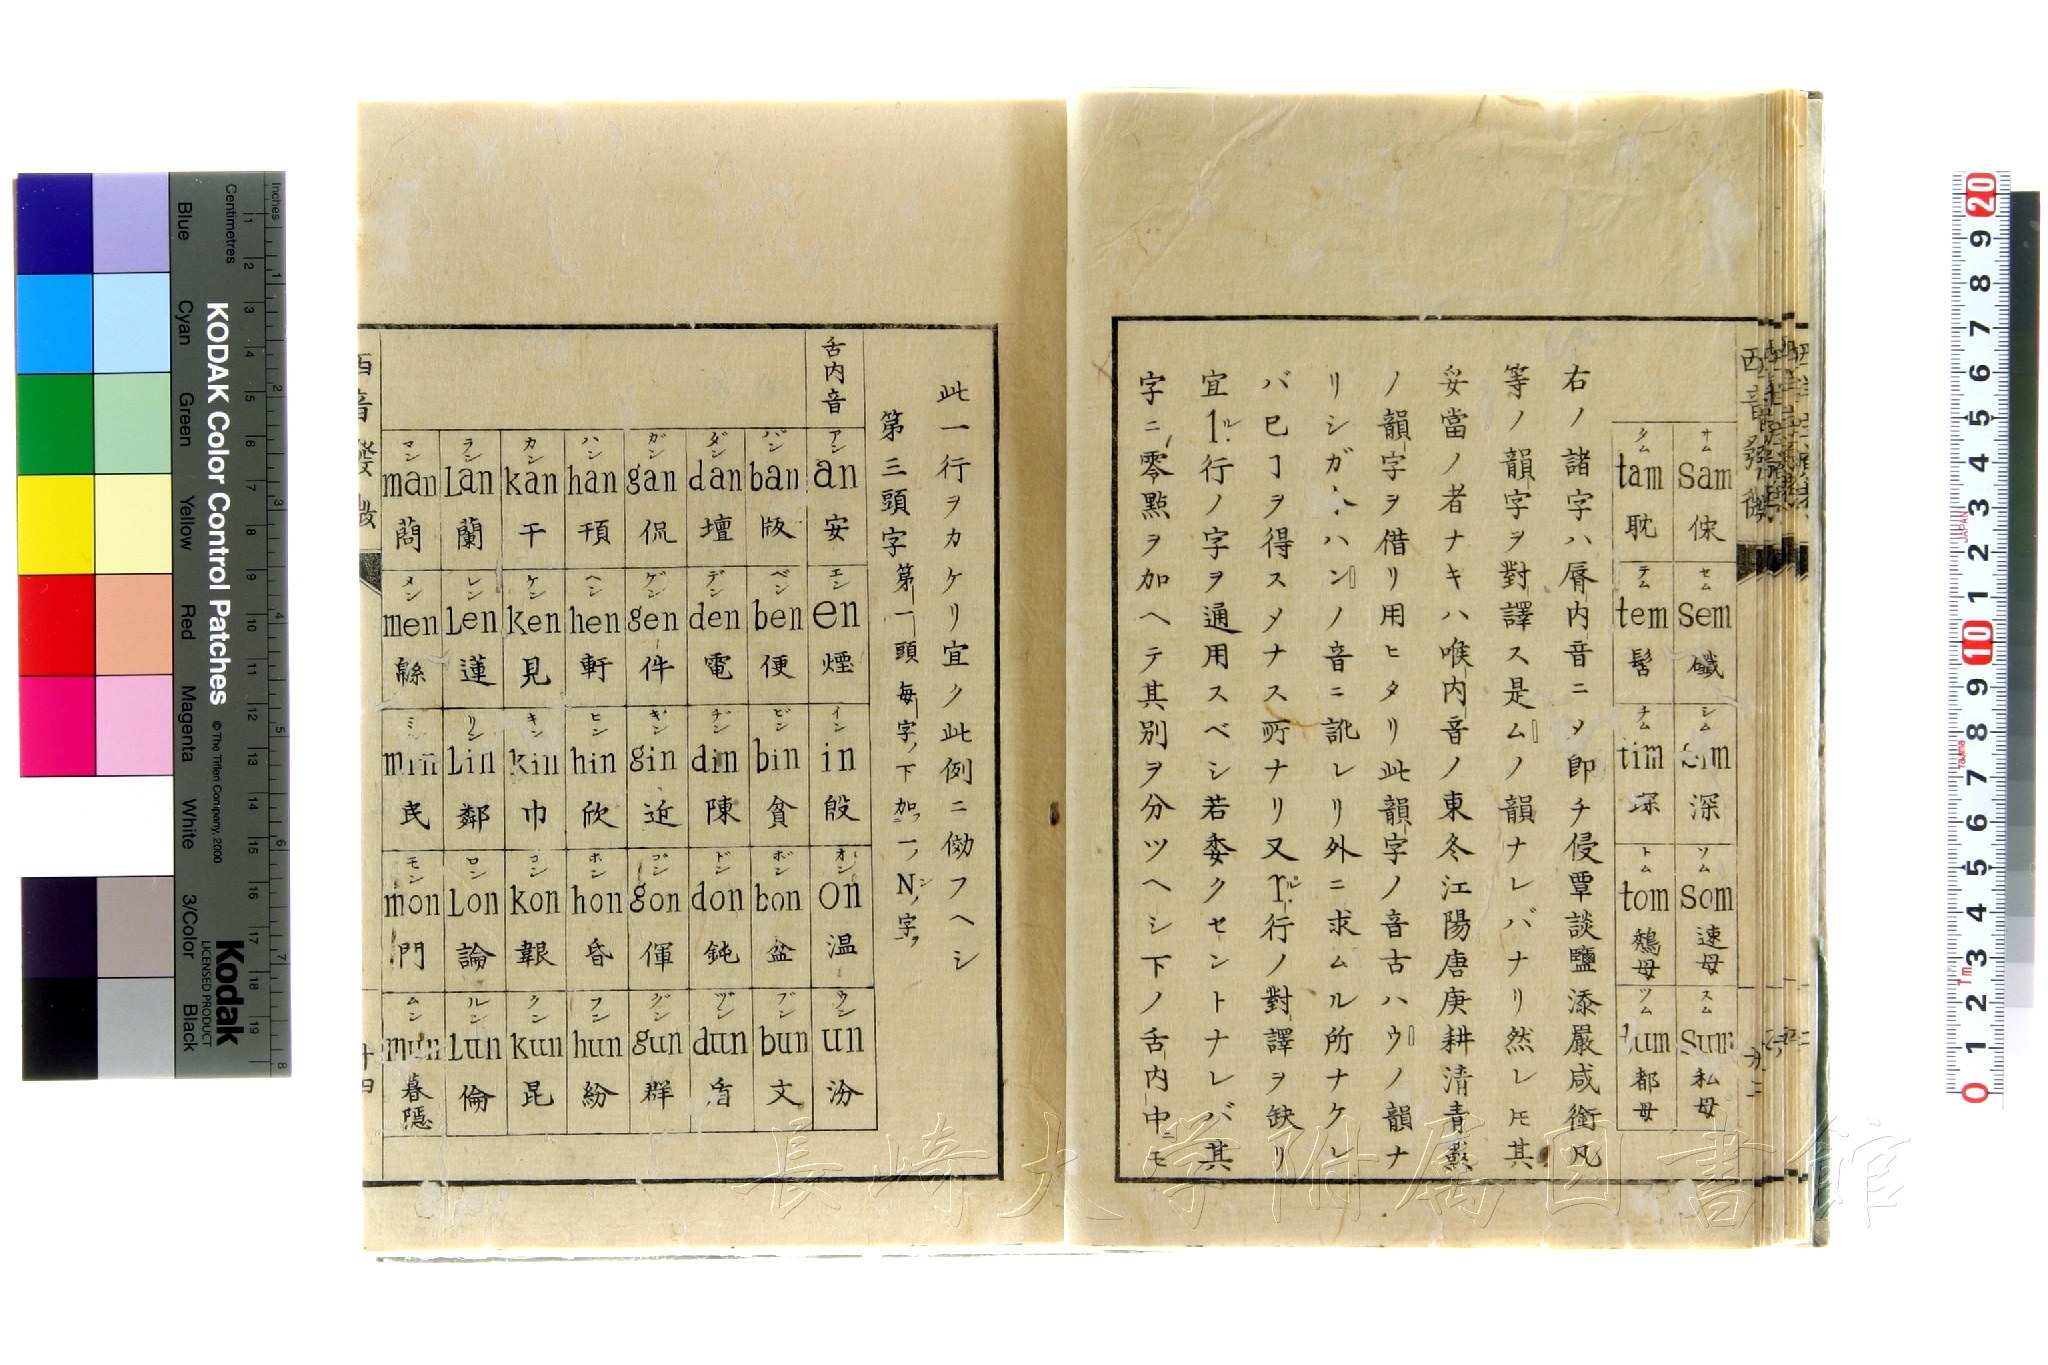 サム sam 倸
セム sem 孅
シム sim 深
ソム som 速母
スム sum 私母
タム tam 耽
テム tem 髻
チム tim 琛
トム tom 鵚母
ツム tum 都母
右ノ諸字ハ脣内音ニメ即チ侵覃談鹽添嚴咸銜凡
等ノ韻字ヲ對譯ス是ムノ韻ナレバナリ然レ𪜈其
妥當ノ者ナキハ喉内音ノ東冬江陽唐庚耕清青蒸
ノ韻字ヲ借リ用ヒタリ此韻字ノ音古ハウノ韻ナ
リシガ今ハンノ音ニ訛レリ外ニ求ムル所ナケレ
バ已ヿヲ得スメナス所ナリ又r.行ノ對譯ヲ缺リ
宜l.行ノ字ヲ通用スベシ若委クセントナレバ其
字ニ零點ヲ加ヘテ其別ヲ分ツヘシ下ノ舌内中ニモ
此一行ヲカケリ宜ク此例ニ傚フヘシ
第三頭字第一頭毎字ノ下加フ一ノN字ヲ
舌内音
アン an 安
エン en 煙
イン in 殷
オン on 温
ウン un 汾
バン ban 版
ベン ben 便
ビン bin 貧
ボン bon 盆
ブン bun 文
ダン dan 壇
デン den 電
ヂン din 陳
ドン don 鈍
ヅン dun 盾
ガン gan 侃
ゲン gen 件
ギン gin 近
ゴン gon 倱
グン gun 群
ハン han 頇
ヘン hen 軒
ヒン hin 欣
ホン hon 昏
フン hun 紛
カン kan 干
ケン ken 見
キン kin 巾
コン kon 報
クン kun 昆
ラン Lan 蘭
レン Len 蓮
リン Lin 鄰
ロン Lon 論
ルン Lun 倫
マン man 䓣
メン men 緜
ミン min 民
モン mon 門
ムン mun 暮隱
西音發微
十四
長崎大学附属図書館
KODAK Color Control Patches
© The Tiffen Company, 2000
Kodak
LICENSED PRODUCT
Inches
Centimetres
Blue
Cyan
Green
Yellow
Red
Magenta
White
3/Color
Black